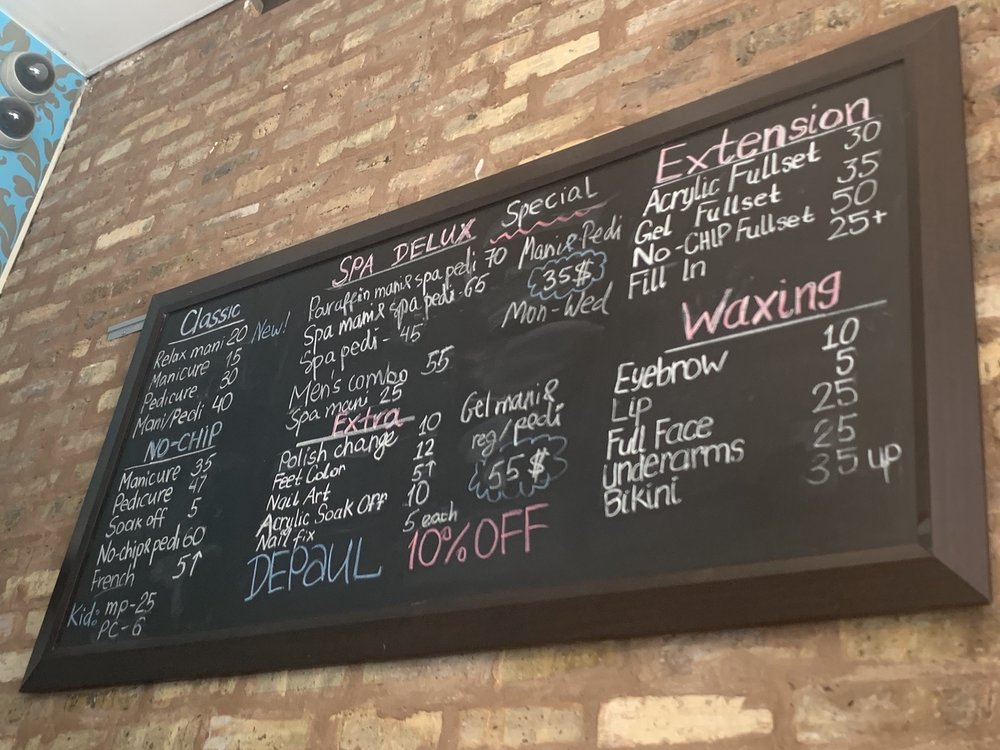 Classic
Relax mani 20 New!
Manicure 15
Pedicure 30
Mani/Pedi 40
NO-CHIP
Manicure 35
Pedicure 47
Soak off 5
No-chip & pedi 60
French 5↑
Kid: mp-25
PC-6
SPA DELUX
Paraffin mani & spa pedi 70
Spa mani & spa pedi-65
Spa pedi- 45
Men's combo 55
Spa mani 25
Extra
Polish change 10
Feet Color 12
Nail Art 5↑
Acrylic Soak Off 10
Nail fix 5 each
DEPAUL 10% OFF
Special
Mani & Pedi
35$
Mon-Wed
Gel mani &
reg/pedi
55$
Extension
Acrylic Fullset 30
Gel Fullset 35
No-CHIP Fullset 50
Fill In 25+
Waxing
Eyebrow 10
Lip 5
Full Face 25
underarms 25
Bikini 35 up